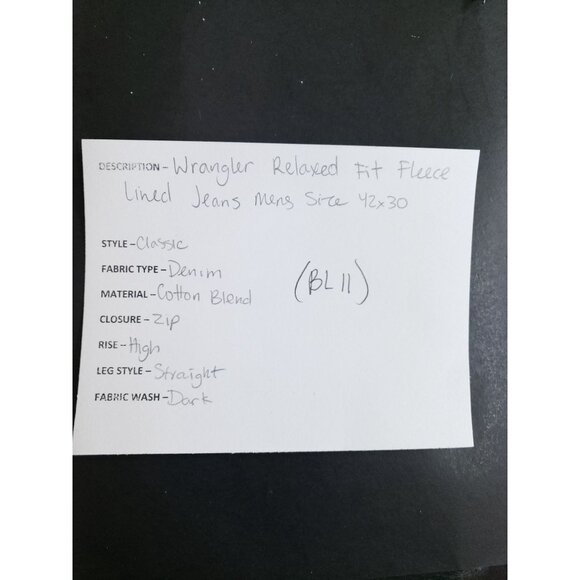 DESCRIPTION - Wrangler Relaxed Fit Fleece
Lined Jeans Mens Size 42x30
STYLE - Classic
FABRIC TYPE - Denim
MATERIAL - Cotton Blend
(BL 11)
CLOSURE - Zip
RISE - High
LEG STYLE - Straight
FABRIC WASH - Dark